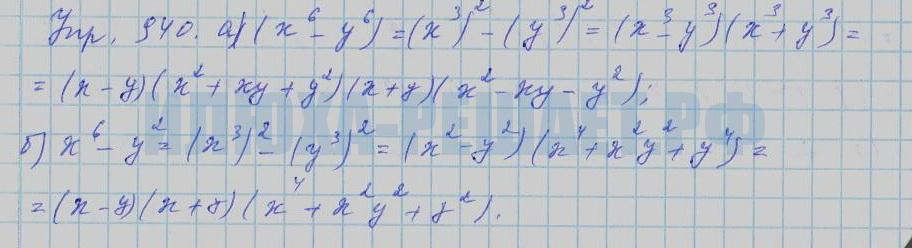 Упр. 940. а) (x⁶ - y⁶) = (x³)² - (y³)² = (x³ - y³)(x³ + y³) =
= (x - y)(x² + xy + y²)(x + y)(x² - xy - y²);
б) x⁶ - y² = (x³)² - (y³)² = (x² - y²)(x⁴ + x²y² + y⁴) =
= (x - y)(x + y)(x⁴ + x²y² + y²).